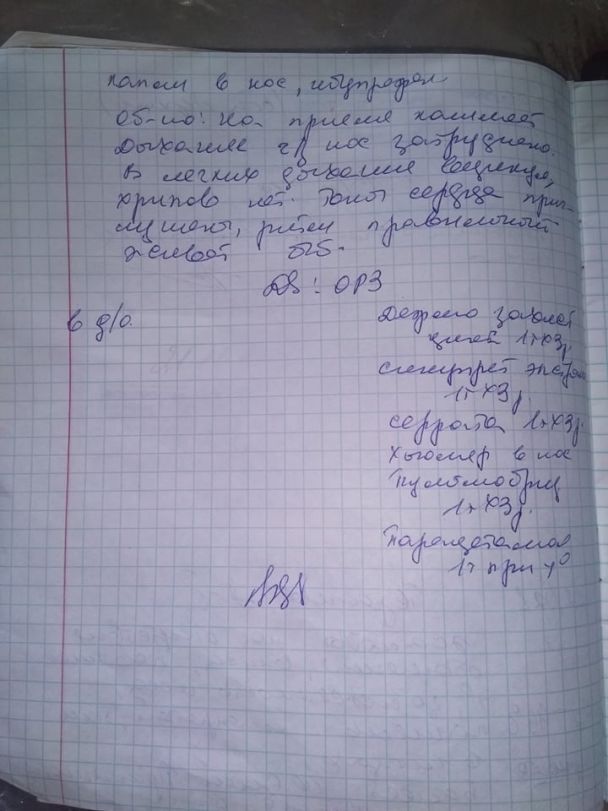 капли в нос, ибупрофен
Об-но: на приеме
Дыхание ч/з нос затруднено.
В легких дыхание везикул,
хрипов нет. Тоны сердца приг-
лушены, ритм правильный
живот б/б.
DS: ОРЗ
в д/о.
1т х3 р.
синупрет экстракт
1т х3 р.
серрата 1т х3 р.
хьюмер в нос
Пульмобриз
1т х3 р.
Парацетамол
1т при to